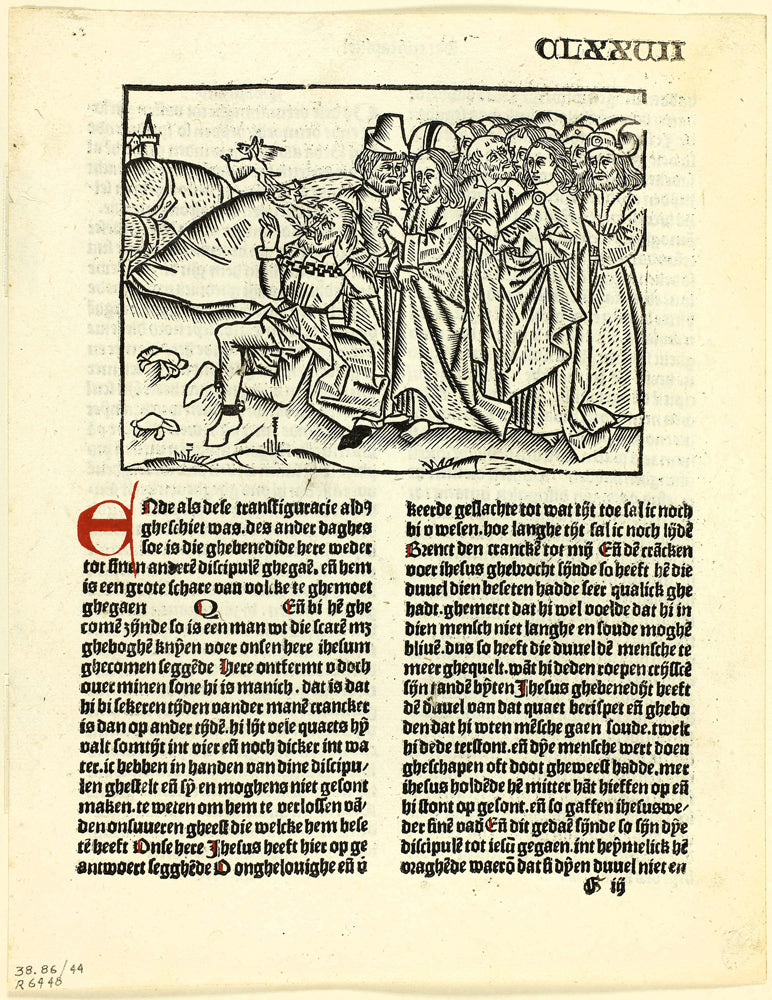 CLXXVII
ENde als dese transfiguracie aldꝰ
gheschiet was. des ander daghes
soe is die ghebenedide here weder
tot sinen anderē discipulē ghegaē. eñ hem
is een grote schare van volcke te ghemoet
ghegaen Q Eñ bi hē ghe
comē zijnde so is een man wt die scarē mz
gheboghē knyen voer onsen here ihesum
ghecomen seggēde Here ontfermt v doch
ouer minen sone hi is manich. dat is dat
hi bi sekeren tijden vander manē crancker
is dan op ander tijdē. hi lijt vele quaets hy
valt somtijt int vier eñ noch dicker int wa
ter. ic hebben in handen van dine discipu/
len ghestelt eñ sy en moghens niet gesont
maken. te weten om hem te verlossen vā/
den onsuueren gheest die welcke hem bese
tē heeft Onse here Jhesus heeft hier op ge
antwoert segghēde O onghelouighe eñ v̄
keerde geslachte tot wat tijt toe sal ic noch
bi v wesen. hoe langhe tijt sal ic noch lijdē
Brenct den cranckē tot mij Eñ dē crācken
voer ihesus ghebrocht sijnde so heeft hē die
duuel dien beseten hadde seer qualick ghe
hadt. ghemerct dat hi wel voelde dat hi in
dien mensch niet langhe en soude moghē
bliuē. dus so heeft die duuel dē mensche te
meer ghequelt. wāt hi deden roepen crijsscē
sijn tandē byten Jhesus ghebenedijt heeft
dē duuel van dat quaet berispet eñ ghebo
den dat hi wten mēsche gaen soude. twelc
hi dede terstont. eñ dye mensche wert doen
gheschapen oft doot gheweest hadde. mer
ihesus holdēde hē mitter hāt hieffen op eñ
hi stont op gesont. eñ so gaffen ihesus we/
der sinē vad Eñ dit gedaē sijnde so sijn dye
discipulē tot iesū gegaen. int heymelick hē
vraghēde waerō dat si dyen duuel niet en
G iij
38.86/44
R6448